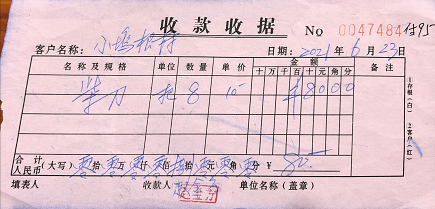 收款收据 No 0047484 付95
客户名称: 小坞 村 日期: 2021 年 6 月 23 日
名称及规格 单位 数量 单价 金额 备注
十 万 千 百 十 元 角 分
柴刀 把 8 10- ¥8000
①存根(白) ②客户(红)
合计人民币 (大写) 零拾零万零仟零佰捌拾零元零角零分 ¥ 80-
填表人 收款人 单位名称(盖章)